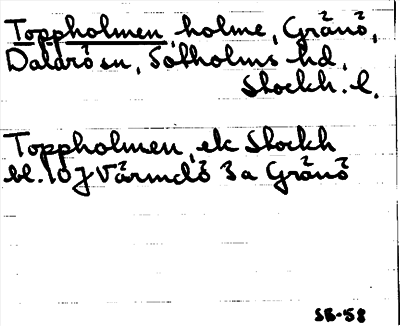 Toppholmen, holme, Gränö,
Dalarö sn, Sotholms hd,
Stockh. l.
Toppholmen, ek Stockh
bl. 107 Värmdö 3a Gränö
SB-58